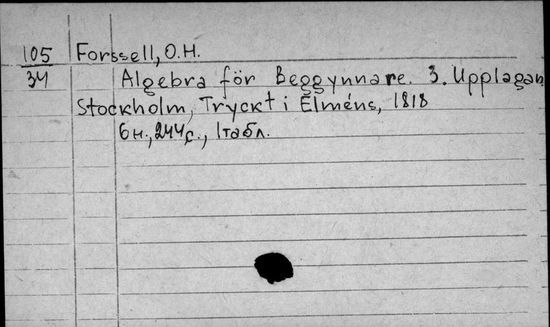 105 Forssell, O.H.
34 Algebra för Beggynnare. 3. Upplagan
Stockholm, Tryckt i Elméns, 1818
6н., 244с., 1табл.